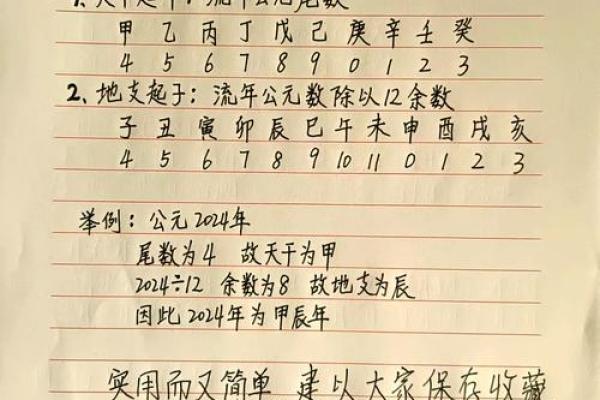 1、天干起甲：流年公元尾数
甲 乙 丙 丁 戊 己 庚 辛 壬 癸
4 5 6 7 8 9 0 1 2 3
2、地支起子：流年公元数除以12余数
子 丑 寅 卯 辰 巳 午 未 申 酉 戌 亥
4 5 6 7 8 9 10 11 0 1 2 3
举例：公元2024年
尾数为4 故天干为甲
2024÷12 余数为8 故地支为辰
因此2024年为甲辰年
实用而又简单 建以大家保存收藏